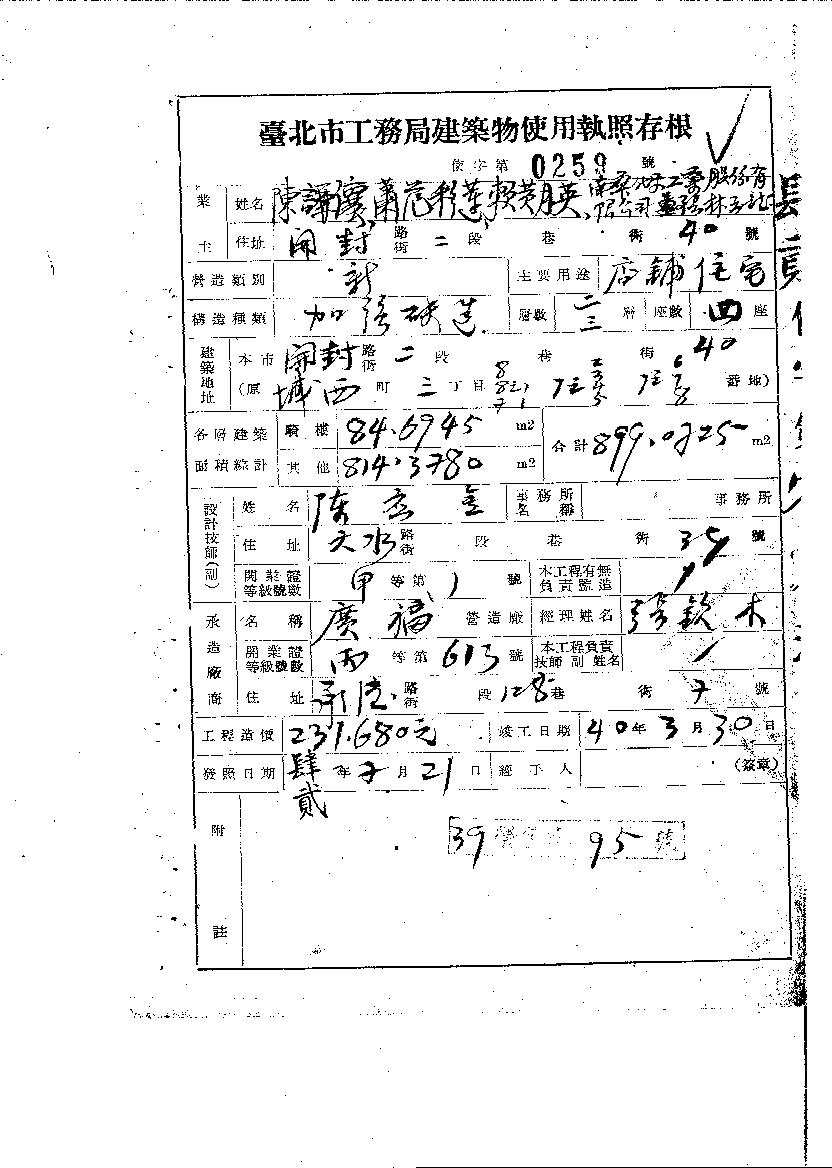 臺北市工務局建築物使用執照存根
使字第 0259 號
業主 姓名 陳 蕭 賴黃月英
住址 開封 路街 二 段 巷 街 40 號
營造類別 新 主要用途 店鋪住宅
構造種類 加強砖造 層數 二三 層 座數 四 座
建築地址 本市 開封 路街 二 段 巷 街 40
(原 城西 町 三 丁目 番地)
各層建築面積綜計 騎樓 84.6945 m2 合計 899.0725 m2
其他 814.3780 m2
設計技師(副) 姓名 陈 金 事務所名稱 事務所
住址 天水 路街 段 巷 街 35 號
開業證等級號數 甲 等第 1 號 本工程有無負責監造
承造廠商 名稱 廣福 營造廠 經理姓名 張欽木
開業證等級號數 丙 等第 613 號 本工程負責技師副姓名
住址 承德 路街 段 128 巷 街 7 號
工程造價 237.680元 竣工日期 40 年 3 月 30 日
發照日期 肆貳 年 7 月 21 日 經手人 (簽章)
附註
39 營字第 95 號